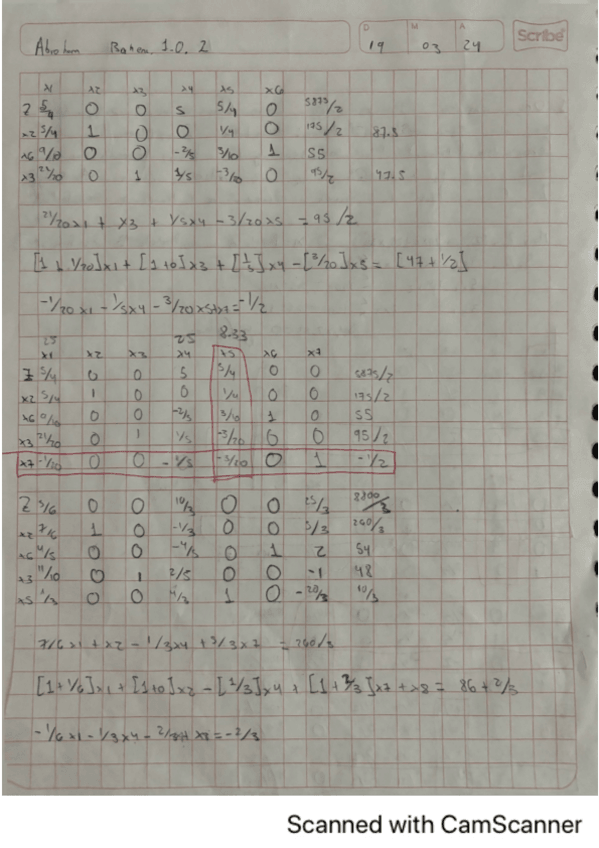 D M A
Scribe
19 03 24
I.O. 2
x1 x2 x3 x4 x5 x6
Z 5/4 0 0 5 5/4 0 5875/2
x2 5/4 1 0 0 1/4 0 175/2 87.5
x6 9/10 0 0 -2/5 3/10 1 55
x3 21/20 0 1 1/5 -3/20 0 95/2 47.5
21/20x1 + x3 + 1/5x4 - 3/20x5 = 95/2
[1 + 1/20]x1 + [1+0]x3 + [1/5]x4 - [3/20]x5 = [47 + 1/2]
-1/20x1 - 1/5x4 - 3/20x5+x7 = -1/2
25 25 8.33
x1 x2 x3 x4 x5 x6 x7
Z 5/4 0 0 5 5/4 0 0 5875/2
x2 5/4 1 0 0 1/4 0 0 175/2
x6 9/10 0 0 -2/5 3/10 1 0 55
x3 21/20 0 1 1/5 -3/20 0 0 95/2
x7 -1/20 0 0 -1/5 -3/20 0 1 -1/2
Z 5/6 0 0 10/3 0 0 25/3 8800/3
x2 7/6 1 0 -1/3 0 0 5/3 260/3
x6 4/5 0 0 -4/5 0 1 2 54
x3 11/10 0 1 2/5 0 0 -1 48
x5 1/3 0 0 4/3 1 0 -20/3 10/3
7/6x1 + x2 - 1/3x4 + 5/3x2 = 260/3
[1 + 1/6]x1 + [1+0]x2 - [1/3]x4 + [1 + 2/3]x7 + x8 = 86 + 2/3
-1/6x1 - 1/3x4 - x8 = -2/3
Scanned with CamScanner